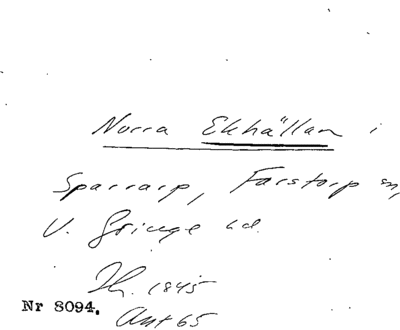 Norra Ekhällan i
Sparrarp, Farstorp sn,
V. Göinge hd.
1845
Nr 8094.
Ant 65